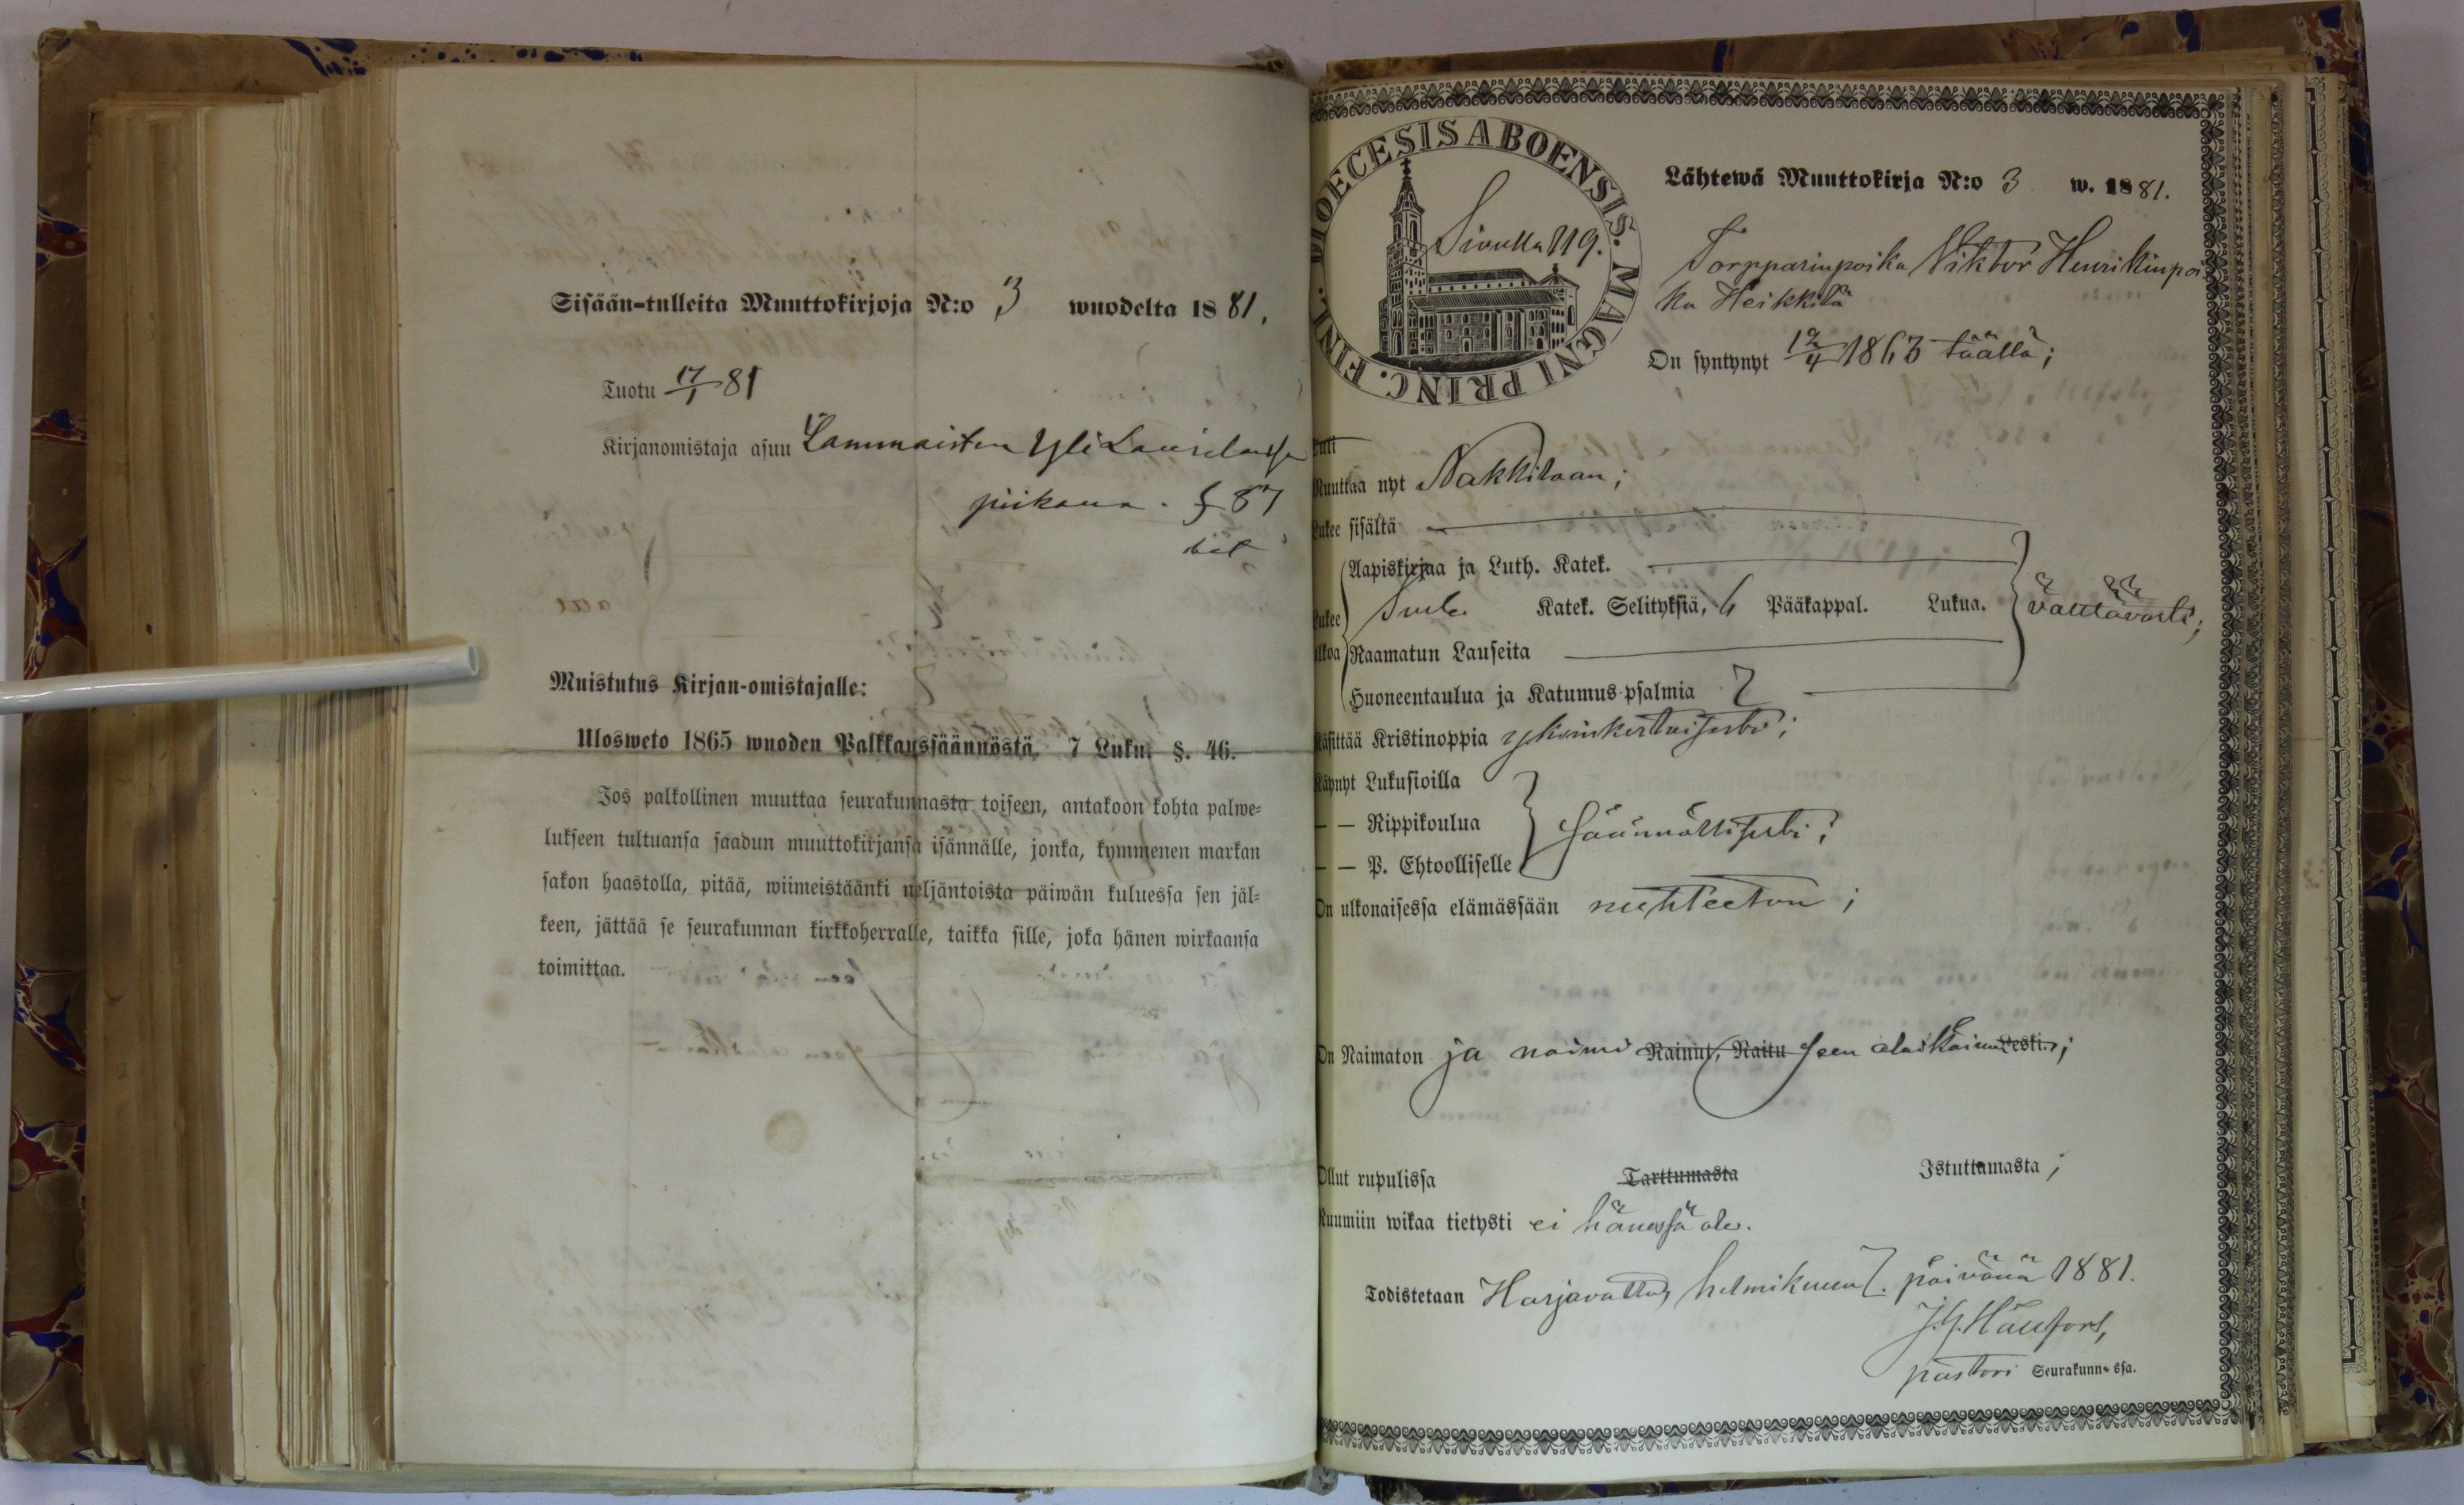 Sisään-tulleita Muuttokirjoja N:o 3 wuodelta 1881.
Tuotu 17/1 81
Kirjanomistaja asuu Lammaisten Yli Laurilassa
piikana. § 87
Muistutus Kirjan-omistajalle:
Ulosweto 1865 wuoden Palkkaussäännöstä, 7 Luku. §. 46.
Jos palkollinen muuttaa seurakunnasta toiseen, antakoon kohta palwe=
lukseen tultuansa saadun muuttokirjansa isännälle, jonka, kymmenen markan
sakon haastolla, pitää, wiimeistäänki neljäntoista päiwän kuluessa sen jäl=
keen, jättää se seurakunnan kirkkoherralle, taikka sille, joka hänen wirkaansa
toimittaa.
DIOECESIS ABOENSIS. MAGNI PRINC. FINL.
Sivulla 119.
Lähtewä Muuttokirja N:o 3 w. 1881.
Torpparinpoika Viktor Henrikinpoi
ka Heikkilä
On syntynyt 12/4 1863 täällä;
Muuttaa nyt Nakkilaan;
Lukee sisältä
Aapiskirjaa ja Luth. Katek.
Lukee Katek. Selityksiä, 6 Pääkappal. Lukua. välttävästi;
ulkoa Raamatun Lauseita
Huoneentaulua ja Katumus-psalmia 7
Käsittää Kristinoppia yksinkertaisesti;
Käynyt Lukusioilla
— — Rippikoulua säännöllisesti;
— — P. Ehtoolliselle
On ulkonaisessa elämässään nuhteeton;
On Naimaton ja Nainut, Naitu Leski.;
Ollut rupulissa Tarttumasta Istuttamasta;
Ruumiin wikaa tietysti ei hänessä ole.
Todistetaan Harjavalta, helmikuun 7. päivänä 1881.
pastori Seurakunn-ssa.